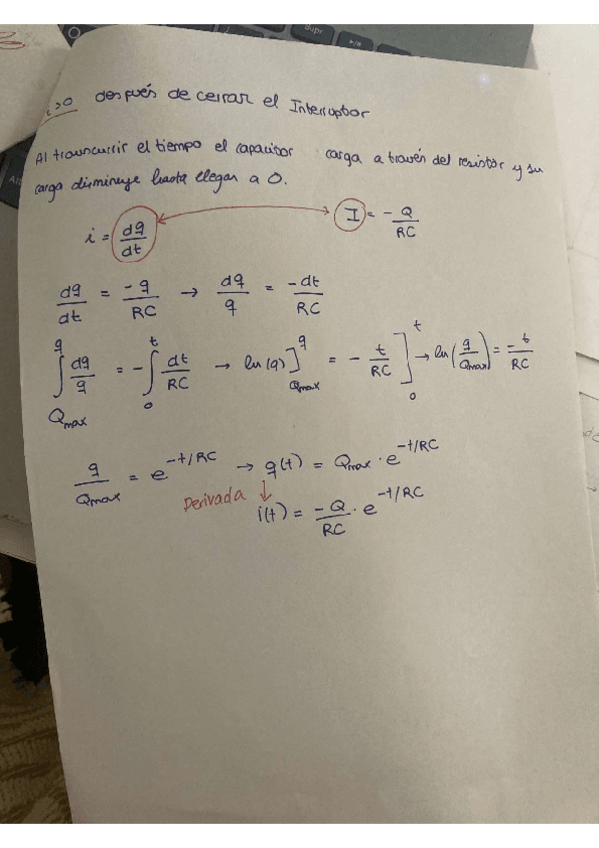 t>0 después de cerrar el Interruptor
Al transcurrir el tiempo el capacitor carga a través del resistor y su
carga disminuye hasta llegar a 0.
i = dq/dt I = - Q/RC
dq/dt = -q/RC → dq/q = -dt/RC
∫_{Qmax}^{q} dq/q = - ∫_{0}^{t} dt/RC → ln(q)]_{Qmax}^{q} = - t/RC]_{0}^{t} → ln(q/Qmax) = -t/RC
q/Qmax = e^{-t/RC} → q(t) = Qmax · e^{-t/RC}
Derivada ↓
i(t) = -Q/RC · e^{-t/RC}